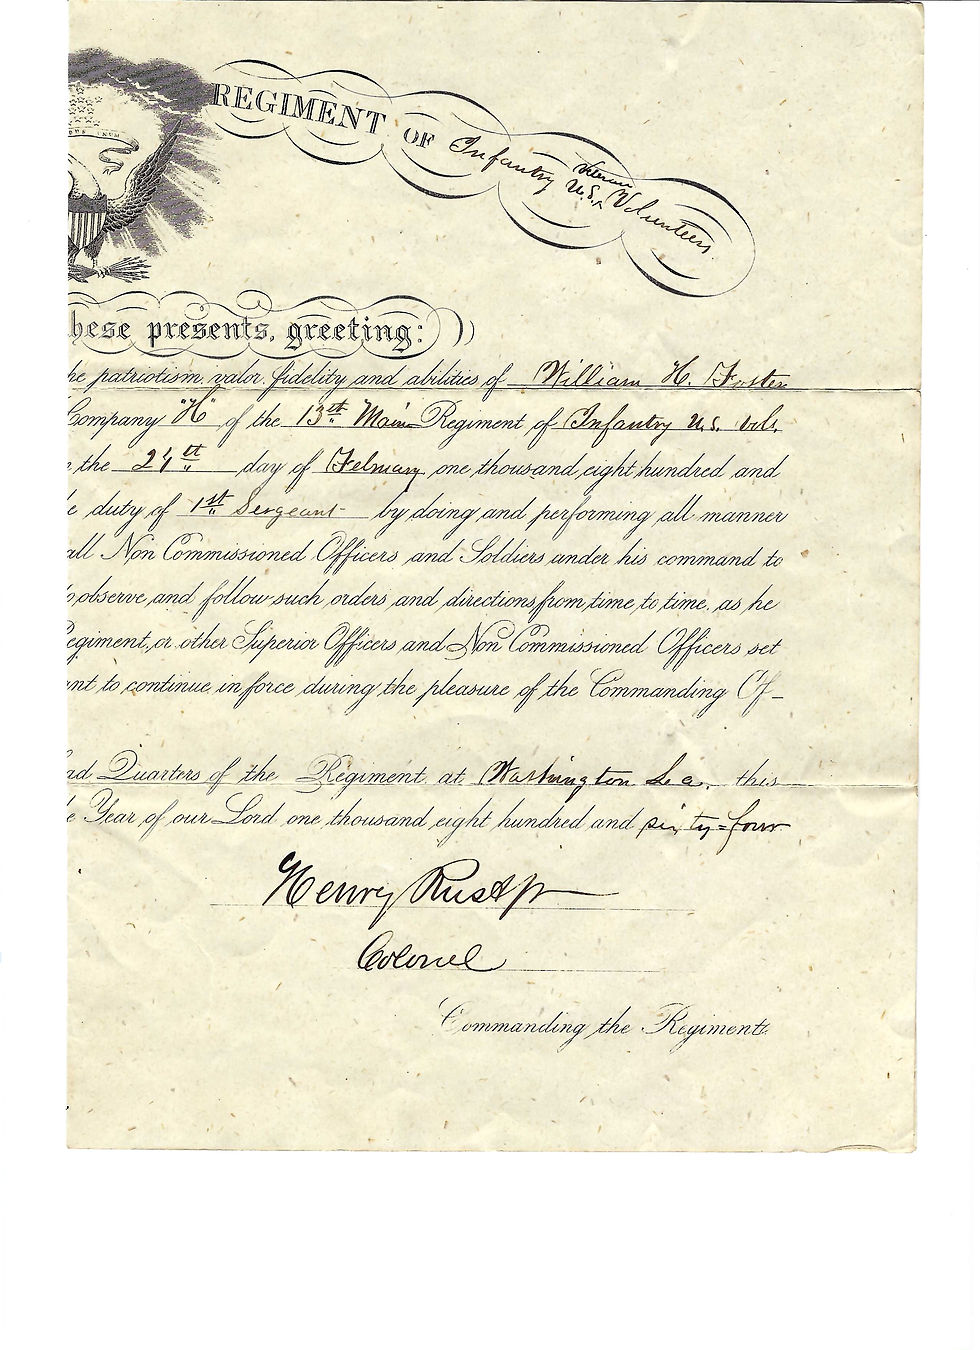 REGIMENT OF Infantry U.S. ‸Veteran Volunteers.
UNUM
hese presents, greeting:
he patriotism, valor, fidelity and abilities of William H. Foster
Company "H" of the 13st Main Regiment of Infantry U.S. Vols.
the day of February one thousand eight hundred and
e duty of 1st Sergeant by doing and performing all manner
all Non Commissioned Officers and Soldiers under his command to
o observe and follow such orders and directions from time to time, as he
Regiment, or other Superior Officers and Non Commissioned Officers set
ant to continue in force during the pleasure of the Commanding Of-
ad Quarters of the Regiment at Washington La. this
e Year of our Lord one thousand eight hundred and sixty=four
Henry Rust Jr
Colonel
Commanding the Regiment.